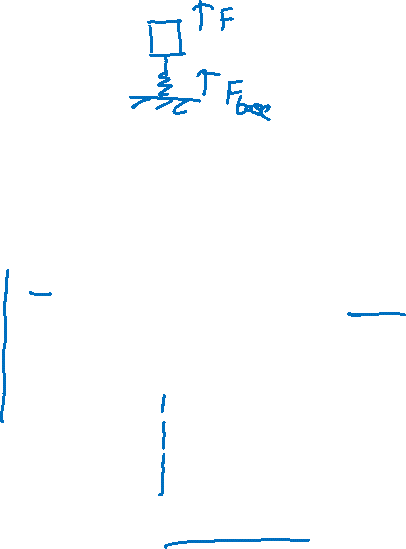 F
F base